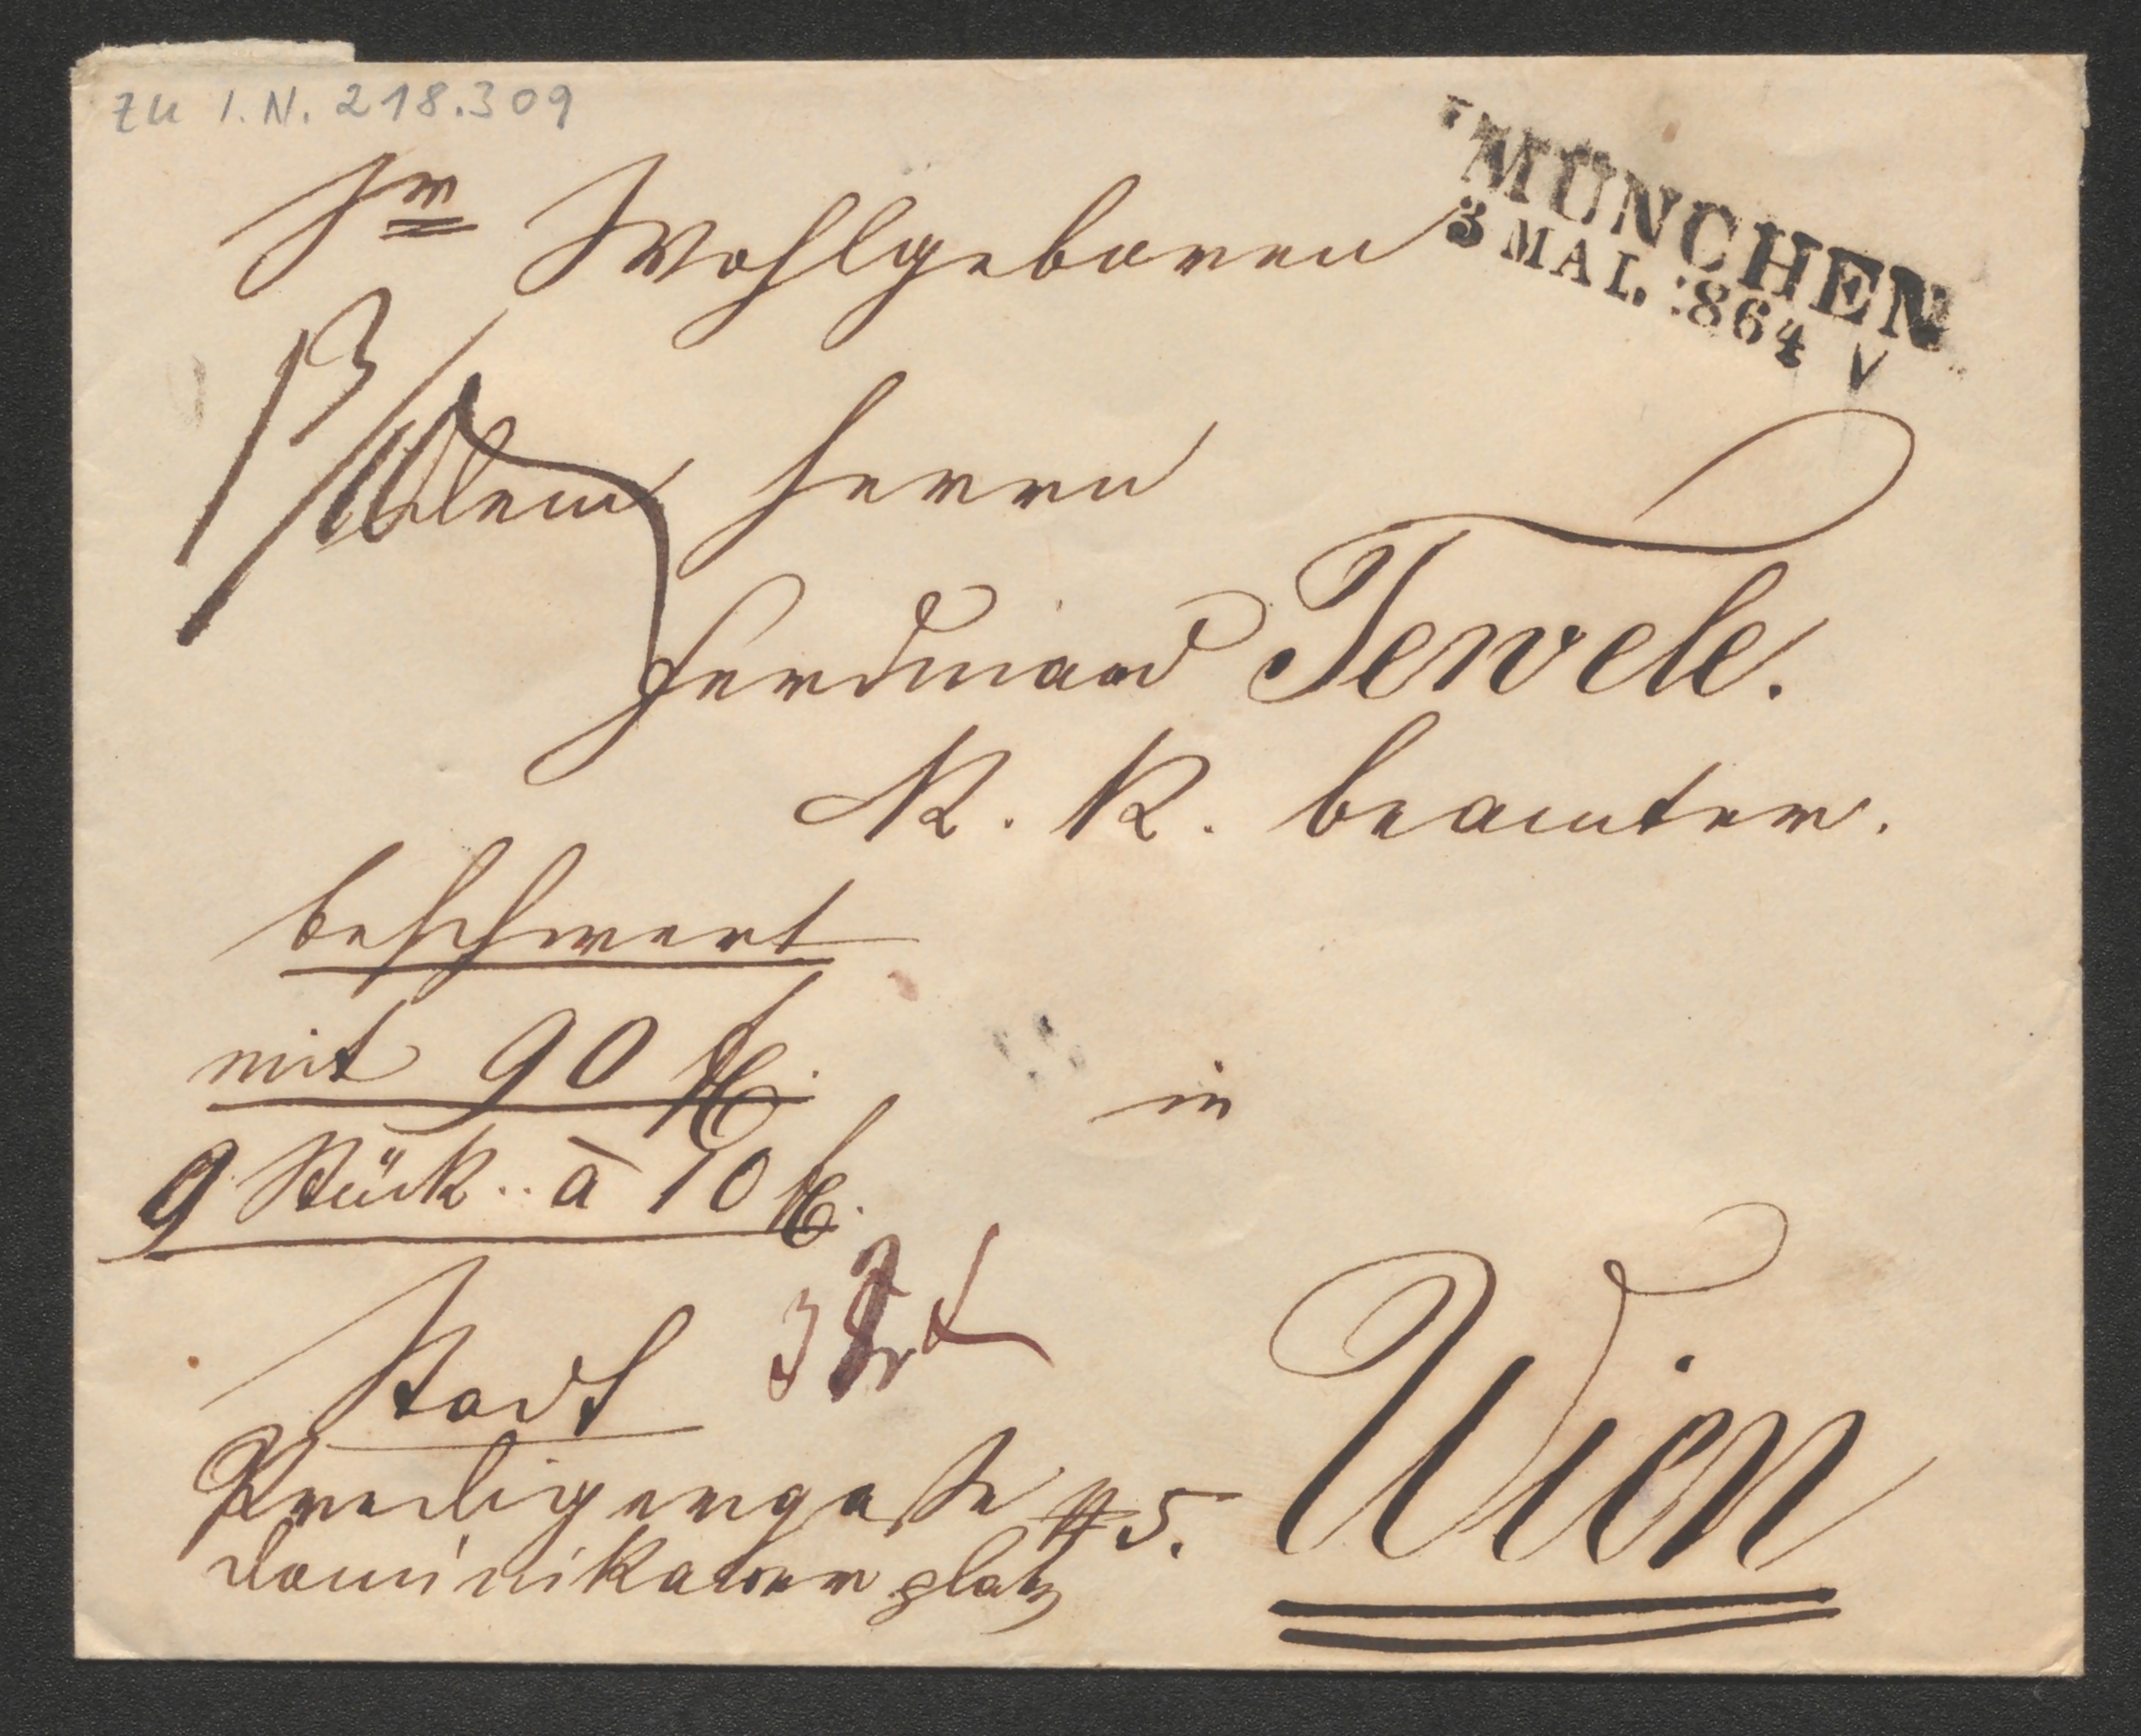 zu I.N. 218.309
MÜNCHEN
3 MAI. 1864 V
Sr Wohlgeboren
dem Herrn
Ferdinand Tewele.
K. K. beamter.
beschwert
mit 90 fl.
9 Stück .. à 10 fl.
in
Stadt
Predigergaße # 5.
Dominikanerplatz
Wien